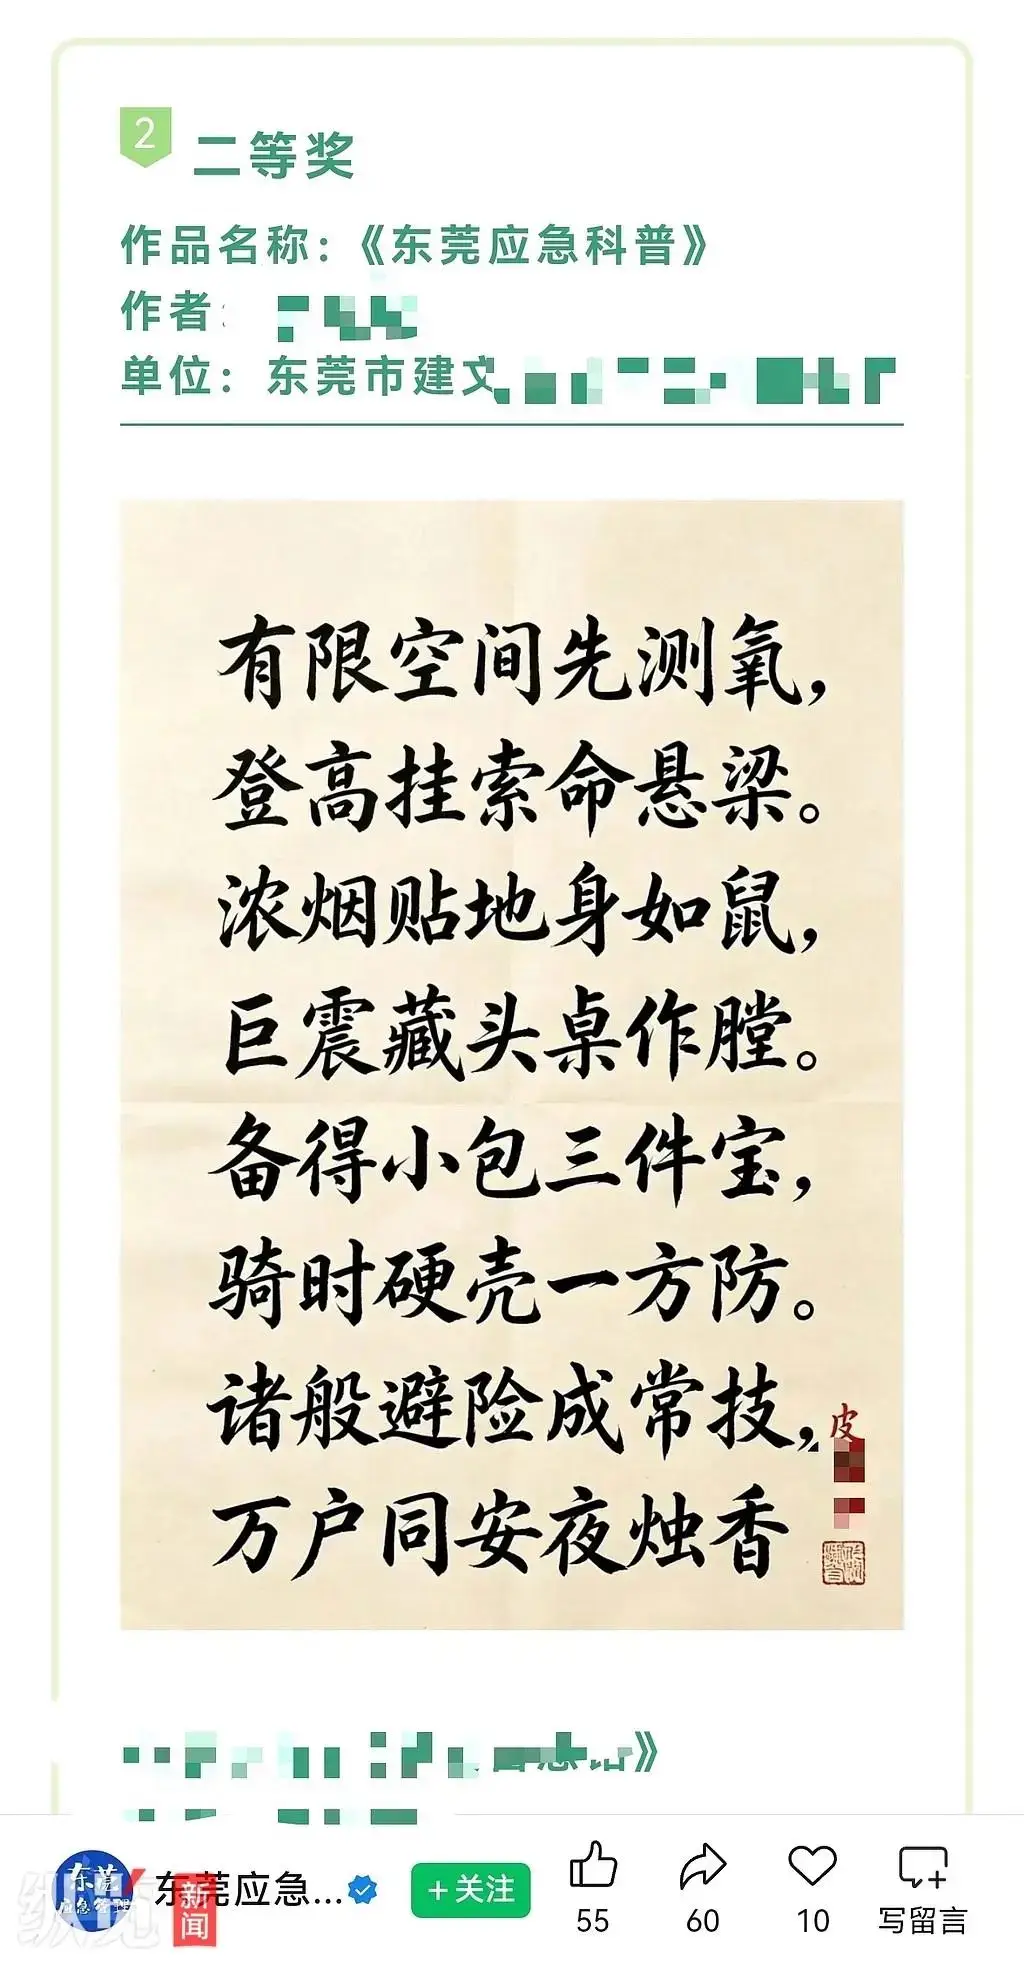 2
二等奖
作品名称:《东莞应急科普》
作者:
单位: 东莞市建文
有限空间先测氧,
登高挂索命悬梁。
浓烟贴地身如鼠,
巨震藏头桌作膛。
备得小包三件宝,
骑时硬壳一方防。
诸般避险成常技,
万户同安夜烛香
皮
》
东莞
应急管理
东莞应急...
+关注
55
60
10
写留言
纵览
新闻